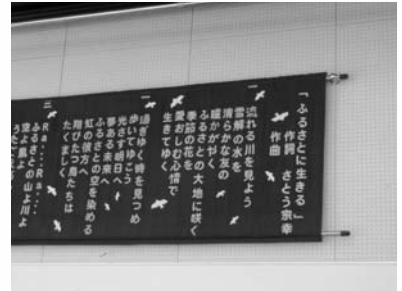 「ふるさとに生きる」
作詞 さとう宗幸
作曲
一
流れる川を見よう
雪解の水を
清らかな友の
暖かがやく
ふるさとの大地に咲く
季節の花を
愛おしむ心情で
生きてゆく
二
過ぎゆく時を見つめ
歩いてゆこう
光さす明日へ
夢ある未来へ
ふるさとの空を染める
虹の彼方へ
翔びたつ鳥たちは
たくましく
三
Ra...Ra...
ふるさとの山よ川よ
空よ風よ